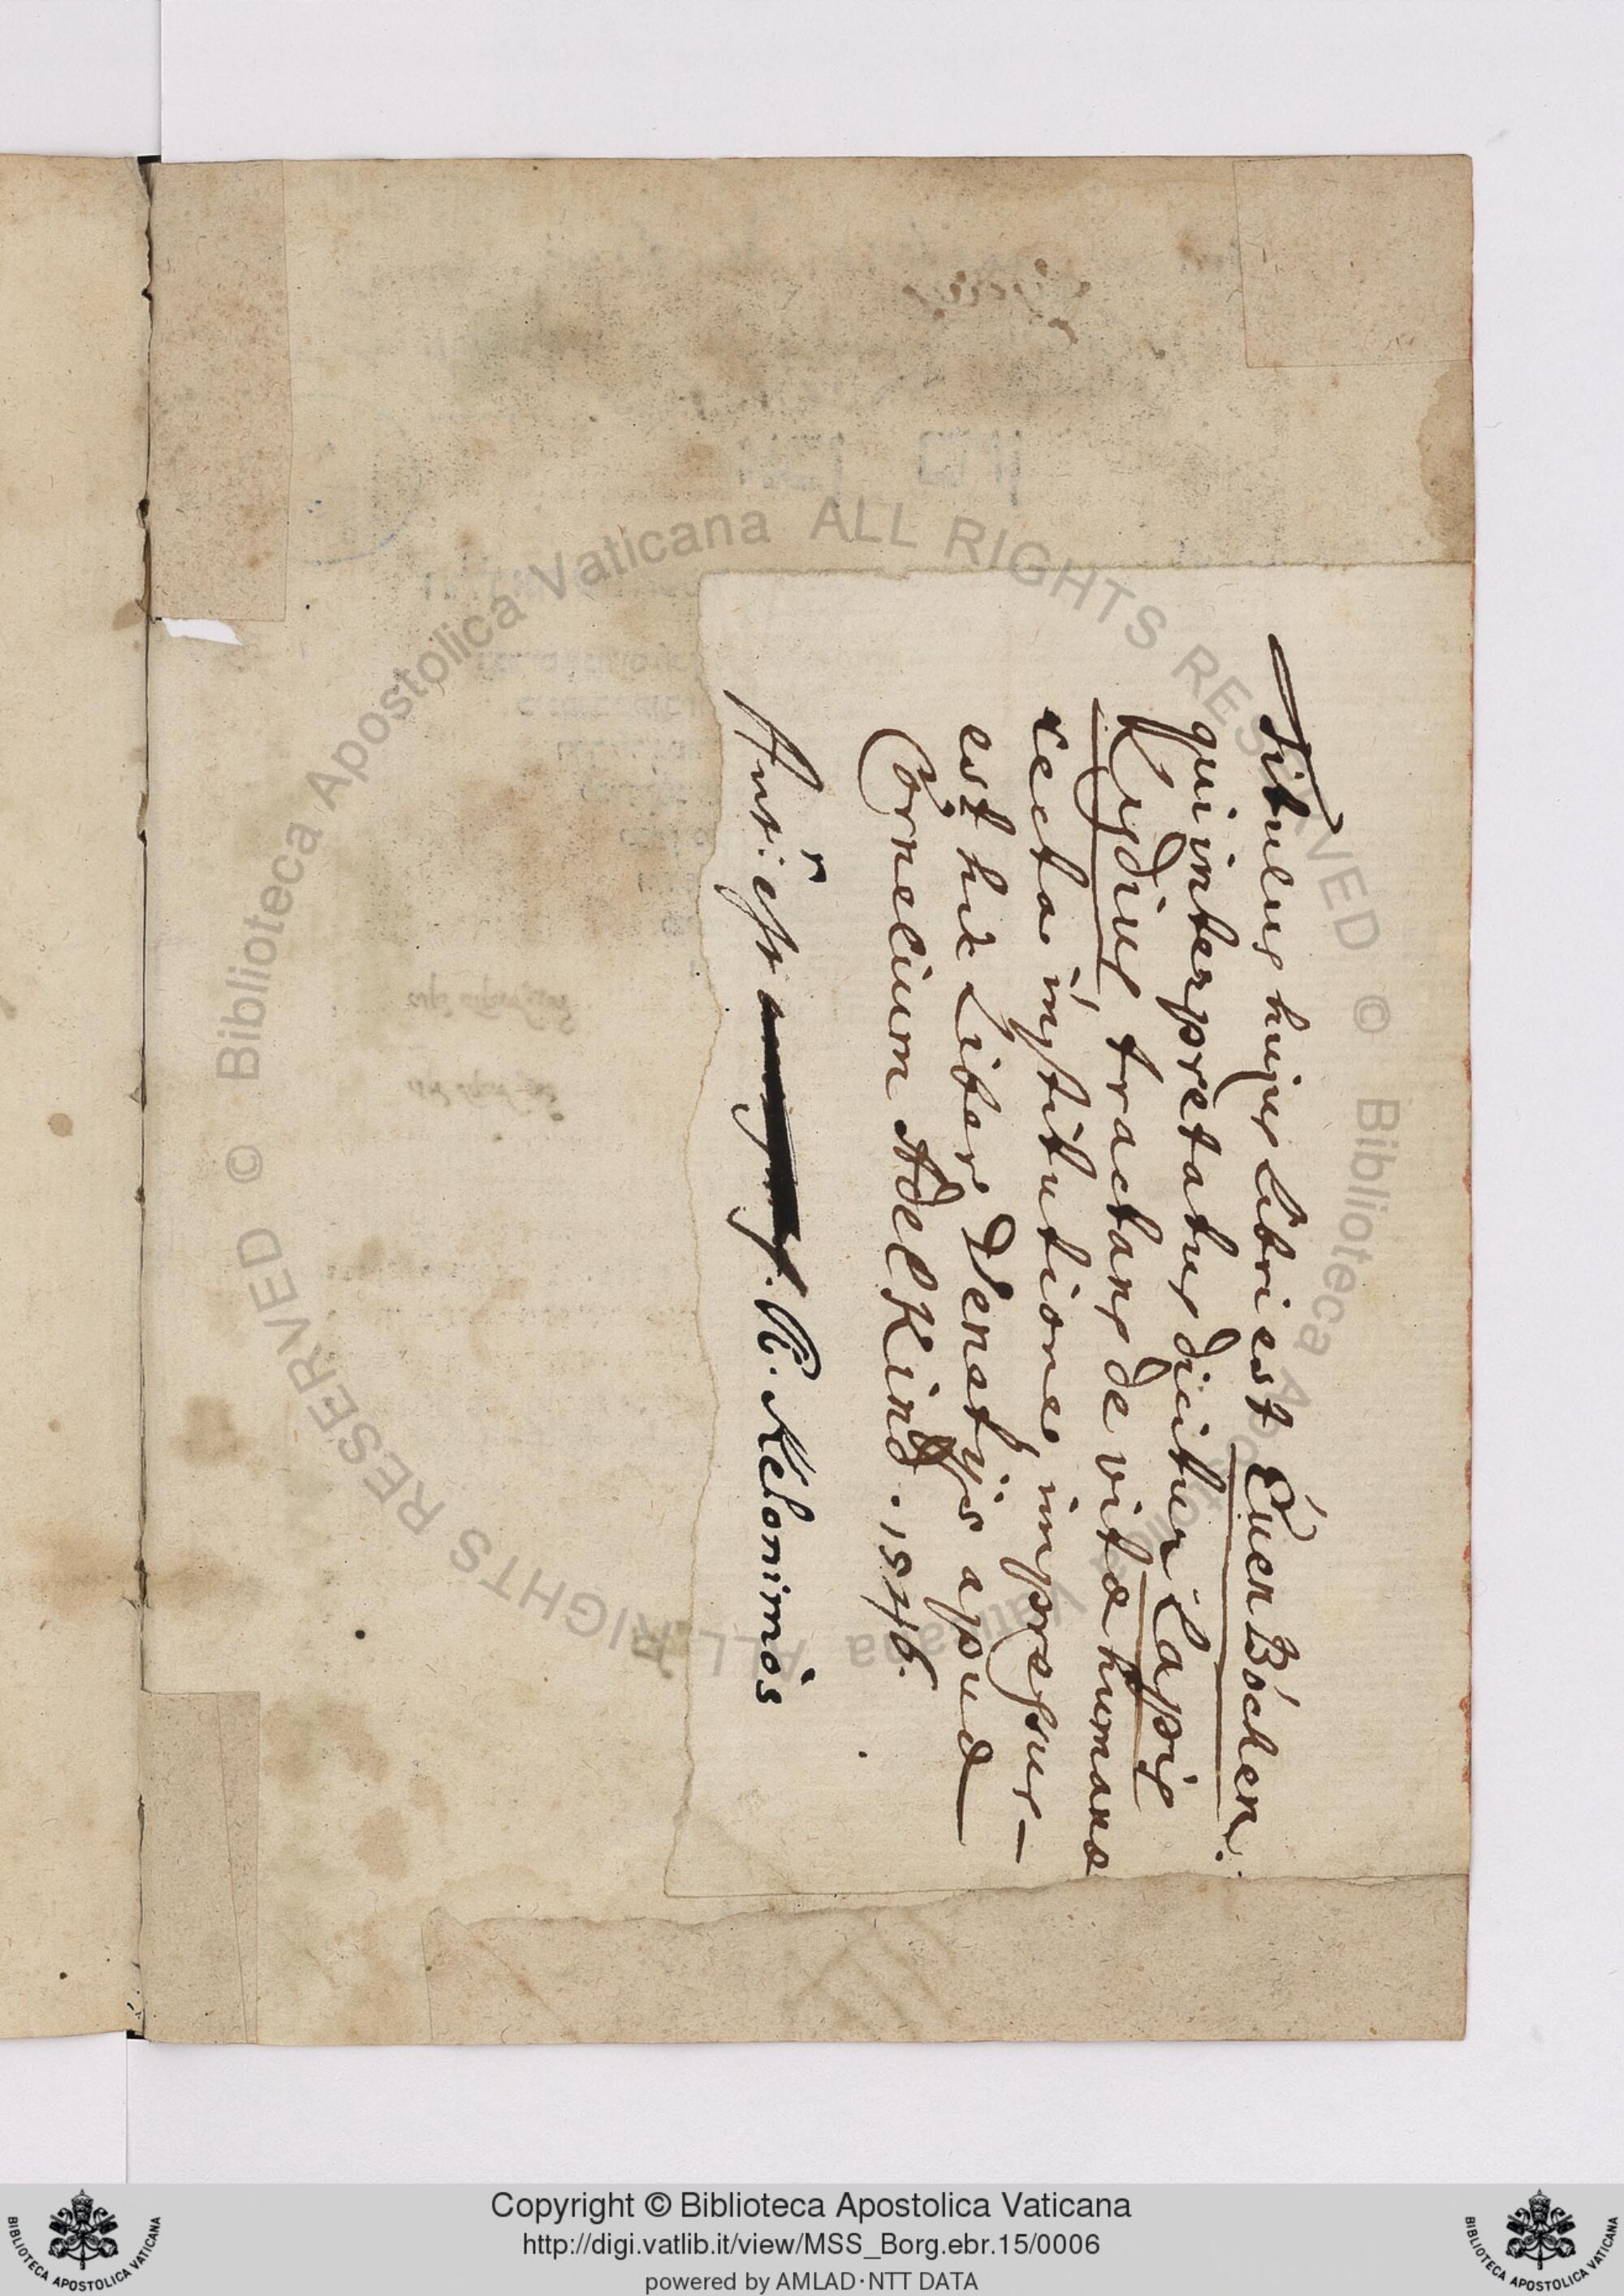 Titulus hujus Libri est Éuen Bóchen.
qui interpretatus dicitur Lapis
Lydius tractans de vitæ humanæ
recta institutione, impressus
est hic Liber Venetÿs apud
Cornelium Adel Kind. 1546.
Aut: est R. Kelonimòs
Copyright © Biblioteca Apostolica Vaticana
http://digi.vatlib.it/view/MSS_Borg.ebr.15/0006
powered by AMLAD·NTT DATA
© Biblioteca Apostolica Vaticana ALL RIGHTS RESERVED
© Biblioteca Apostolica Vaticana ALL RIGHTS RESERVED
BIBLIOTECA APOSTOLICA VATICANA
BIBLIOTECA APOSTOLICA VATICANA